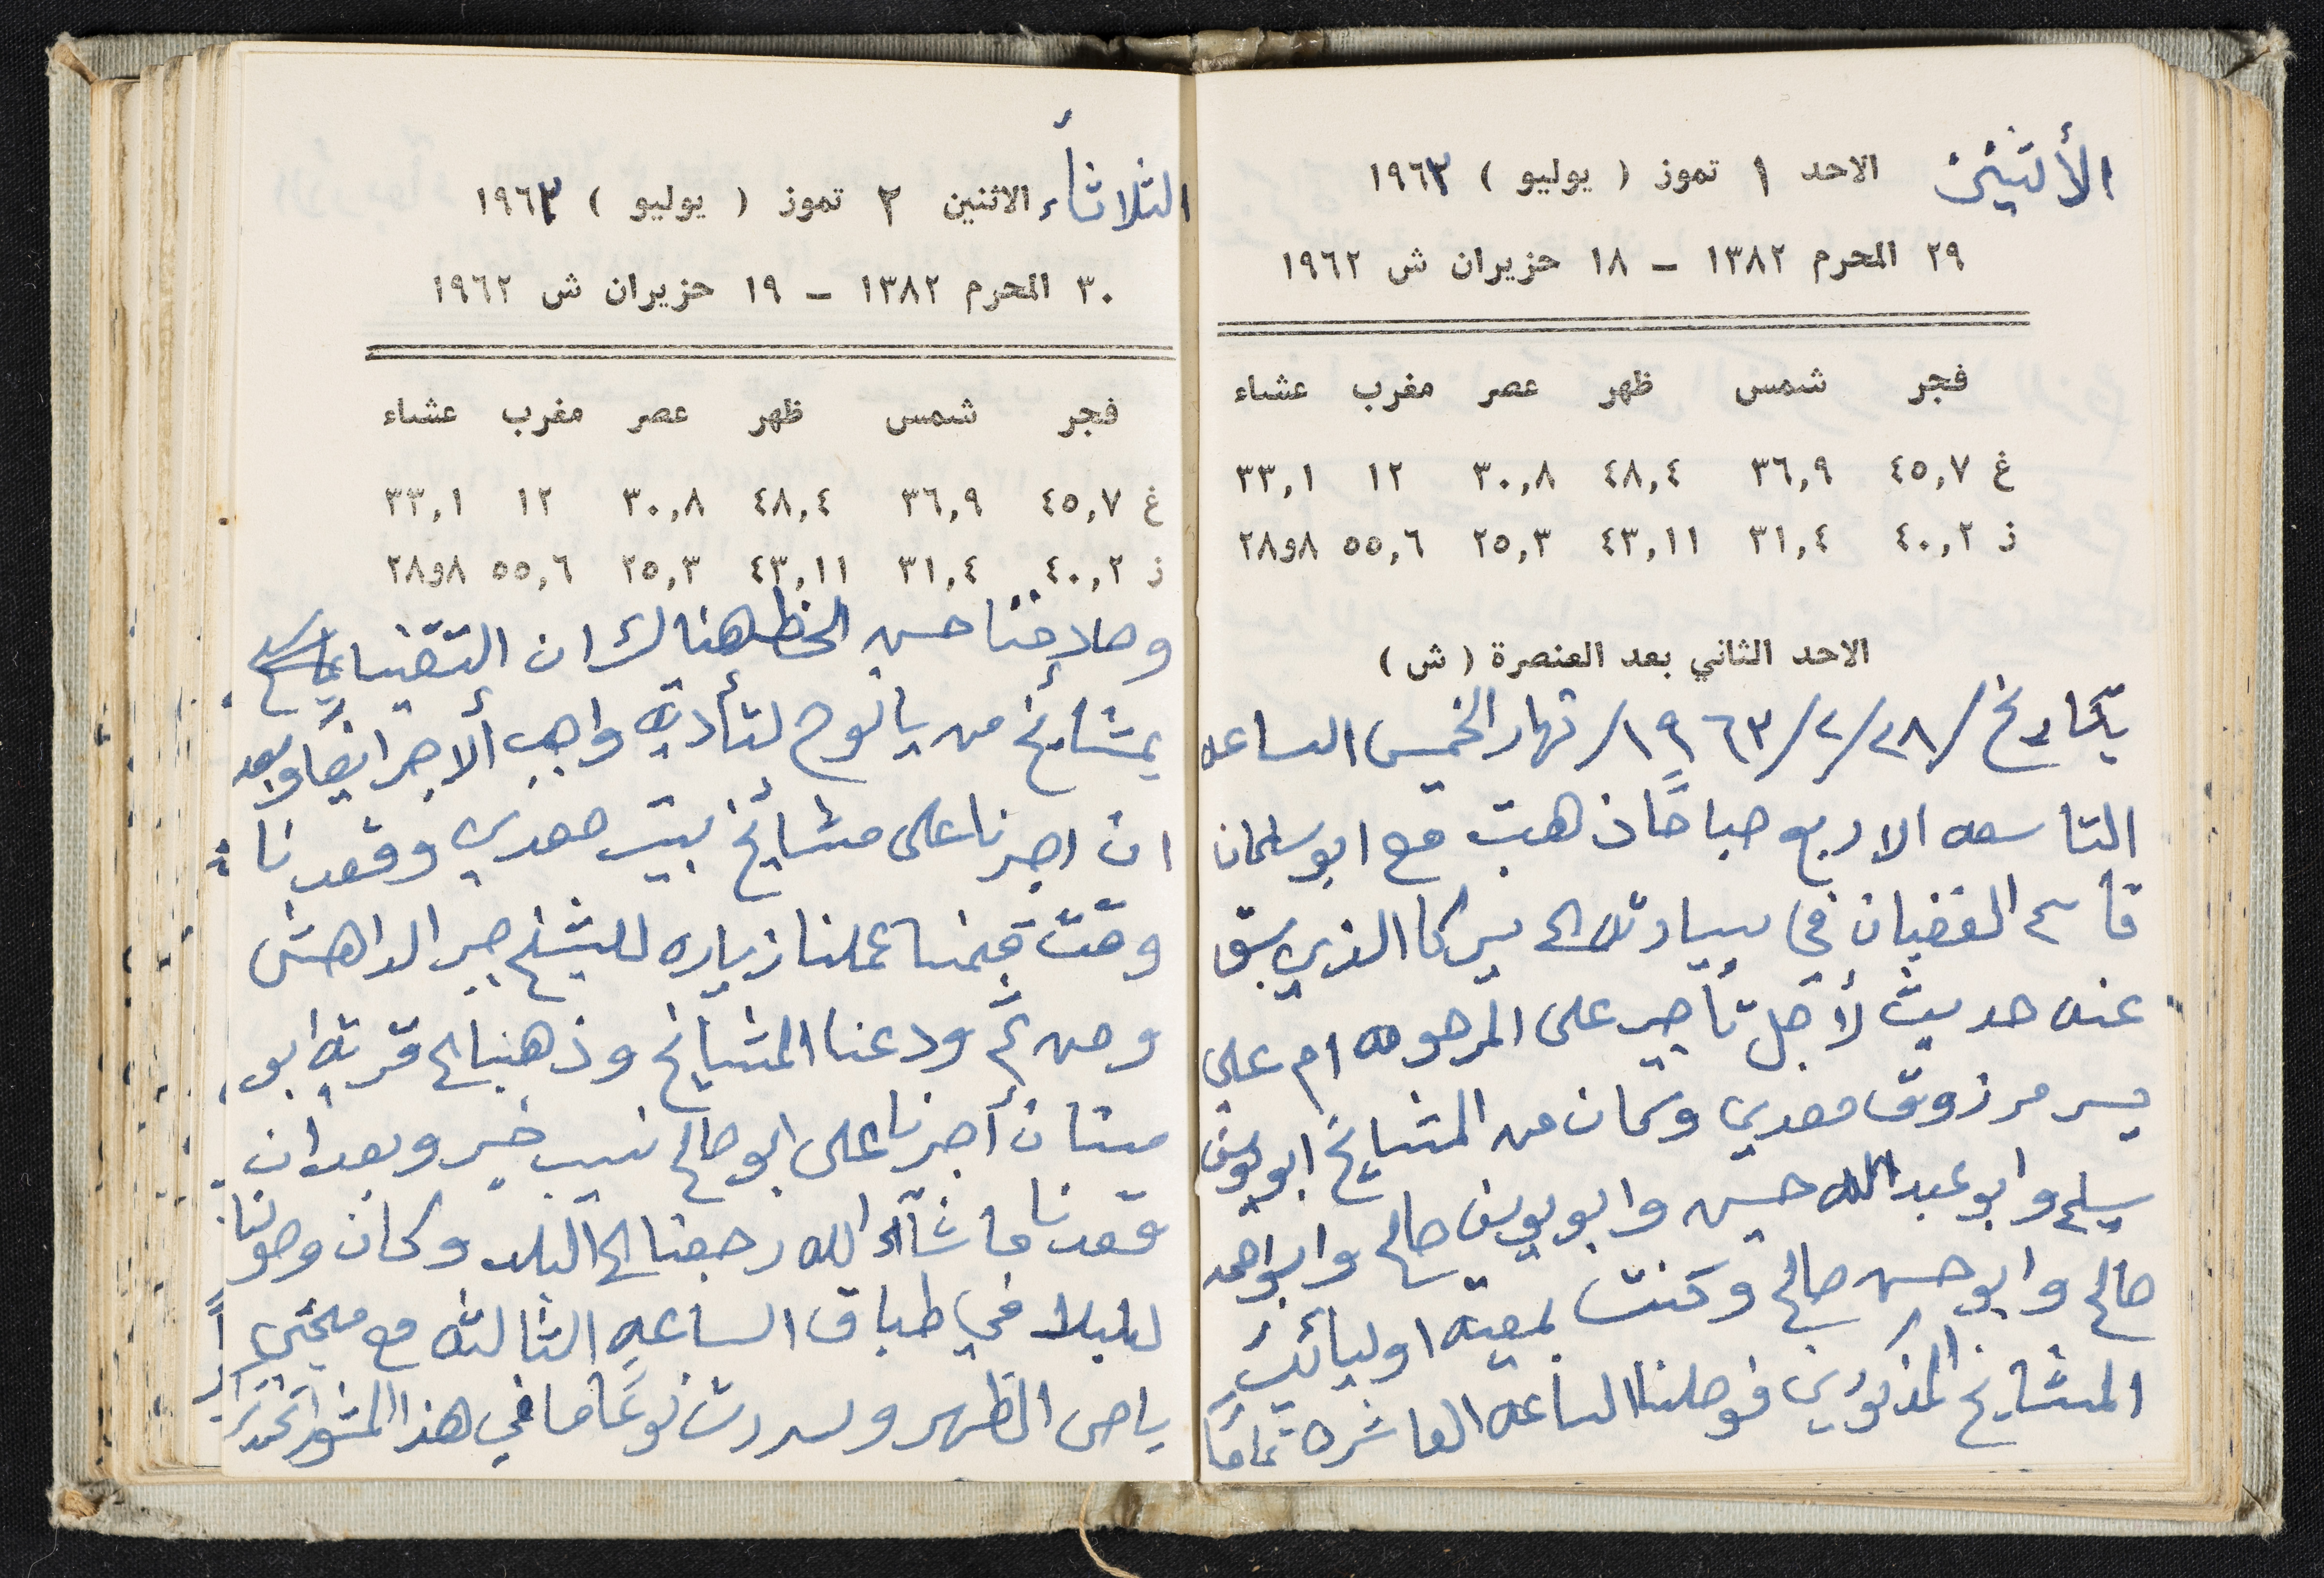 الأثنين الاحد ١ تموز ( يوليو ) ١٩٦٣
٢٩ المحرم ١٣٨٢ – ١٨ حزيران ش ١٩٦٢
فجر شمس ظهر عصر مغرب عشاء
غ ٤٥,٧ ٣٦,٩ ٤٨,٤ ٣٠,٨ ١٢ ٣٣,١
ز ٤٠,٢ ٣١,٤ ٤٣,١١ ٢٥,٣ ٥٥,٦ ٨و٢٨
الاحد الثاني بعد العنصرة ( ش )
بتاريخ /٢٨/٢/١٩٦٣/ نهار الخميس الساعه
التاسعه الا ربع صباحًا ذهبت مع ابو سلمان
قاسم الغضبان في سيارته الى يركا الذي سبق
عنه حديث لأجل تأجير على المرحومه ام علي
يسر مرزوق معدي وكان من المشايخ ابو يوسف
سليم وابو عبدالله حسين وابو يوسف صالح وابو احمد
صالح وابو حسن صالح وكنت بمعية اوليائك
المشايخ المذكورين فوصلنا الساعه العاشره تمامًا
الثلاثاء الاثنين ٢ تموز ( يوليو ) ١٩٦٣
٣٠ المحرم ١٣٨٢ – ١٩ حزيران ش ١٩٦٢
فجر شمس ظهر عصر مغرب عشاء
غ ٤٥,٧ ٣٦,٩ ٤٨,٤ ٣٠,٨ ١٢ ٣٣,١
ز ٤٠,٢ ٣١,٤ ٤٣,١١ ٢٥,٣ ٥٥,٦ ٨و٢٨
وصادفنا حسن الحظ هناك ان التقينا
بمشائخ من يانوح لتأدية واجب الأجر ايضًا وبعد
ان اجرنا على مشائخ بيت معدي وقعدنا
وقت قمنا عملنا زياره للشيخ جبر الداهش
ومن ثم ودعنا المشايخ وذهبنا الى قرية ابو
سنان أجرنا على ابو صالح نسيب خير وبعد ان
قعدنا ما شاء الله رجعنا الى البلد وكان وصولنا
للبلد في طباق الساعه الثالثه مع
الظهر وسررت نوعًا ما في هذا المشوار